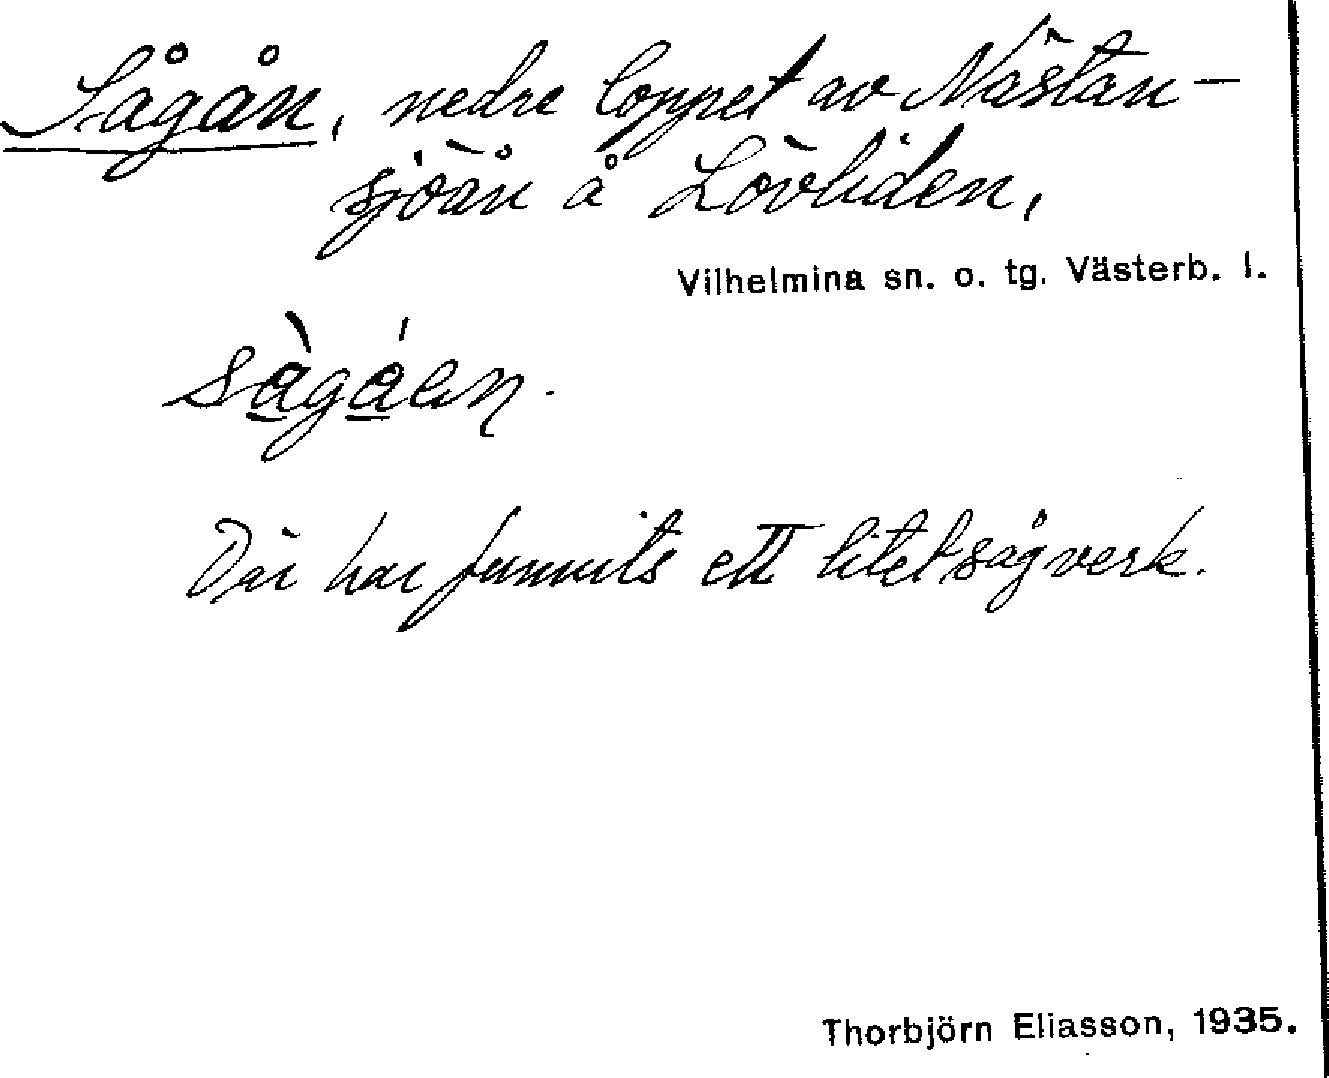 Sågån, nedre loppet av Nästan-
sjöån å Lövliden,
Vilhelmina sn. o. tg. Västerb. l.
Där har funnits ett litet sågverk.
Thorbjörn Eliasson, 1935.